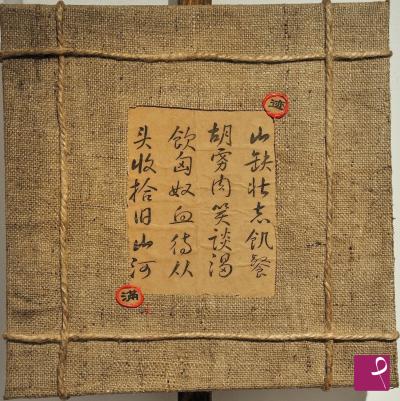 山缺壮志飢餐
胡虏肉笑談渴
飲匈奴血待从
头收拾旧山河
滿